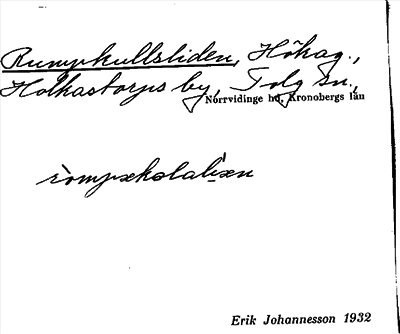 Rumpkullsliden, Höhag.,
Holkastorps by, Tolg sn.,
Norrvidinge hd, Kronobergs län
Erik Johannesson 1932